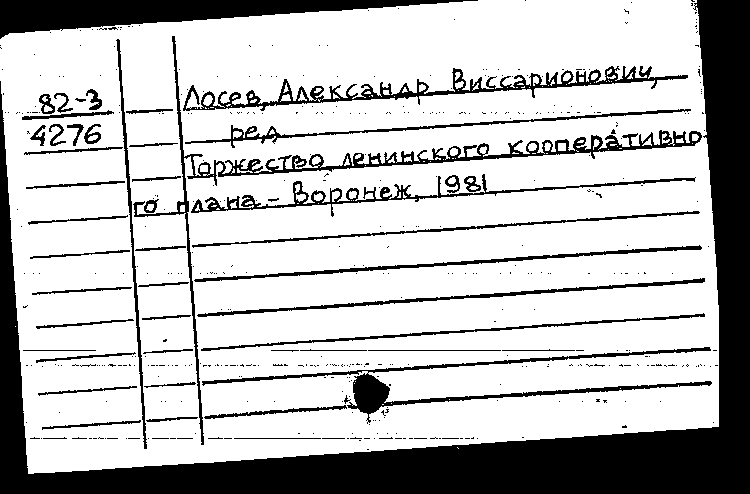 82-3
4276
Лосев, Александр Виссарионович,
ред
Торжество ленинского кооперативно-
го плана – Воронеж, 1981